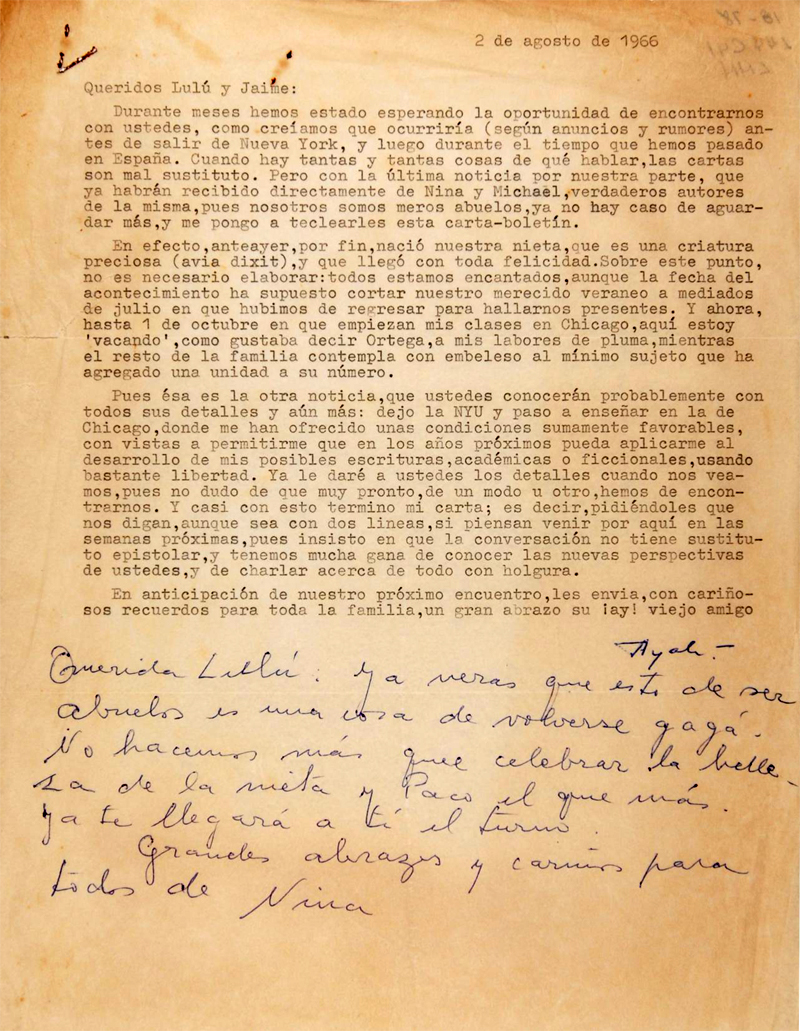 2 de agosto de 1966
Queridos Lulú y Jaime:
Durante meses hemos estado esperando la oportunidad de encontrarnos
con ustedes, como creíamos que ocurriría (según anuncios y rumores) an-
tes de salir de Nueva York, y luego durante el tiempo que hemos pasado
en España. Cuando hay tantas y tantas cosas de qué hablar,las cartas
son mal sustituto. Pero con la última noticia por nuestra parte, que
ya habrán recibido directamente de Nina y Michael,verdaderos autores
de la misma,pues nosotros somos meros abuelos,ya no hay caso de aguar-
dar más,y me pongo a teclearles esta carta-boletín.
En efecto,anteayer,por fin,nació nuestra nieta,que es una criatura
preciosa (avia dixit),y que llegó con toda felicidad.Sobre este punto,
no es necesario elaborar:todos estamos encantados,aunque la fecha del
acontecimiento ha supuesto cortar nuestro merecido veraneo a mediados
de julio en que hubimos de regresar para hallarnos presentes. Y ahora,
hasta 1 de octubre en que empiezan mis clases en Chicago,aquí estoy
'vacando',como gustaba decir Ortega,a mis labores de pluma,mientras
el resto de la familia contempla con embeleso al mínimo sujeto que ha
agregado una unidad a su número.
Pues ésa es la otra noticia,que ustedes conocerán probablemente con
todos sus detalles y aún más: dejo la NYU y paso a enseñar en la de
Chicago,donde me han ofrecido unas condiciones sumamente favorables,
con vistas a permitirme que en los años próximos pueda aplicarme al
desarrollo de mis posibles escrituras,académicas o ficcionales,usando
bastante libertad. Ya le daré a ustedes los detalles cuando nos vea-
mos,pues no dudo de que muy pronto,de un modo u otro,hemos de encon-
trarnos. Y casi con esto termino mi carta; es decir,pidiéndoles que
nos digan,aunque sea con dos lineas,si piensan venir por aquí en las
semanas próximas,pues insisto en que la conversación no tiene sustitu-
to epistolar,y tenemos mucha gana de conocer las nuevas perspectivas
de ustedes,y de charlar acerca de todo con holgura.
En anticipación de nuestro próximo encuentro,les envia,con cariño-
sos recuerdos para toda la familia,un gran abrazo su ¡ay! viejo amigo
Ayala
Querida Lulú: Ya veras que esto de ser
abuelos es una cosa de volverse gagá.
No hacemos más que celebrar la belle-
za de la nieta y Paco el que más.
Ya te llegará a tí el turno.
Grandes abrazos y cariños para
todos de Nina